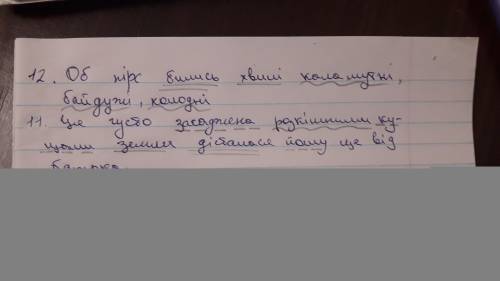 12. Об пірс бились хвилі каламутні,
байдужі, холодні
11. Ця густо засаджена розкішними ку-
щами земля дісталася йому ще від